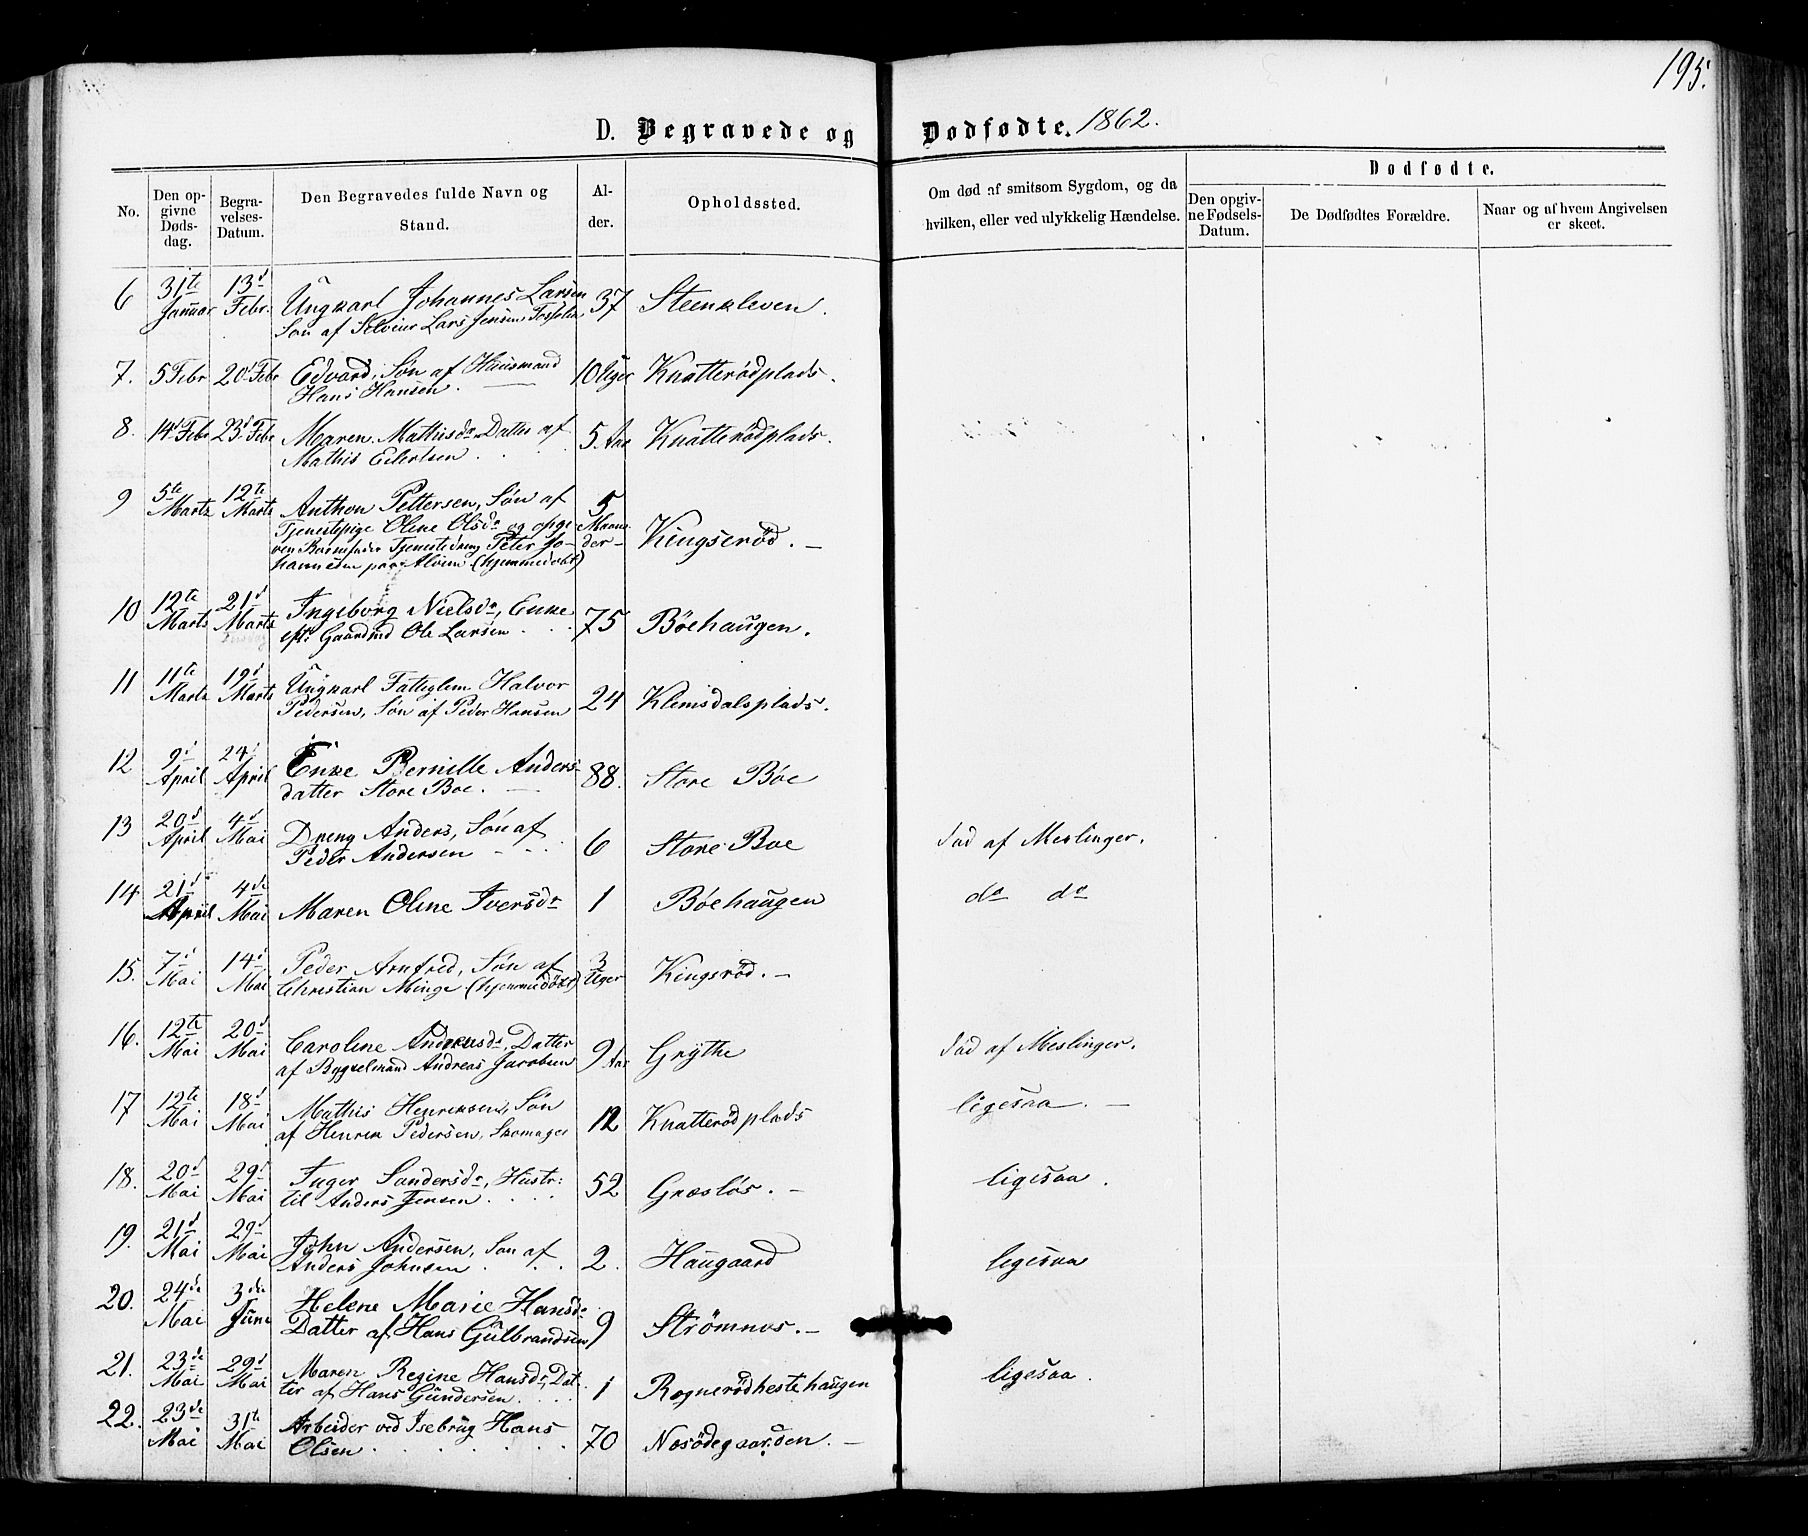 195.
D. Begravede og Dødfødte. 1862.
No.
Den opgivne Dødsdag.
Begravelses-Datum.
Den Begravedes fulde Navn og Stand.
Alder.
Opholdssted.
Om død af smitsom Sygdom, og da hvilken, eller ved ulykkelig Hændelse.
Dødfødte.
Den opgivne Fødsels-Datum.
De Dødfødtes Forældre.
Naar og af hvem Angivelsen er skeet.
6 31te Januar 13d Febr. Ungkarl Johannes Larsen 37 Steenkleven.
Søn af Selveier Lars Jensen
7. 5 Febr 20d Febr Edvard, Søn af Huusmand 10 Uger Knatterødplads.
Hans Hansen.
8. 14d Febr 23d Febr Maren Mathisdr Datter af 5 Aar Knatterødplads.
Mathis Eilertsen . . .
9 5te Marts 12te Marts Anthon Pettersen, Søn af 5 Maaneder Kingserød. —
Tjenestepige Oline Olsdr og opgi
ven Barnefader Tjenestedreng Peter Jo-
hannesen paa Alvim (hjemmedøbt)
10 12te Marts 21d Marts Ingeborg Nielsdr, Enke 75 Böehaugen.
eft: Gaardmd Ole Larsen . . .
11 11te Marts 19d Marts Ungkarl Fattiglem Halvor 24 Klemsdalsplads.
Pedersen, Søn af Peder Hansen
12 9d April 24d April Enke Pernille Anders- 88. Store Böe
datter Store Boe. —
13 20d April 4d Mai Dreng Anders, Søn af 6 Store Boe død af Meslinger.
Peder Andersen
14 21d April 4de Mai Maren Oline Iversdr 1 Böehaugen do do
15. 7d Mai 14d Mai Peder Arnfred, Søn af 3 Uger Kingsrød. —
Christian Minge (hjemmedöbt)
16. 12te Mai 20d Mai Caroline Andreasdr, Datter 9 Aar Grythe død af Meslinger.
af Bygselmand Andreas Jacobsen
17 12te Mai 18d Mai Mathis Henriksen, Søn 12 Knatterødplads ligesaa. —
af Henrik Pedersen, Skomager
18. 20d Mai 29d Mai Inger Sandersdr, Hustr: 52 Græsløs. — ligesaa.
til Anders Jensen . . . .
19. 21d Mai 29d Mai John Andersen, Søn af 2. Haugaard ligesaa
Anders Johnsen . . .
20. 24de Mai 3die Juni Helene Marie Hansdr 9 Strömnes. —
Datter af Hans Gulbrandsen
21. 23de Mai 29d Mai Maren Regine Hansdr, Dat- 1 Rognerödhestehaugen ligesaa.
ter af Hans Gundersen. . . .
22. 23de Mai 31te Mai Arbeider ved Isebrug Hans 70 Næsödegaarden. —
Olsen . . . . . .